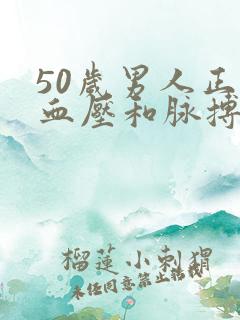 50歲男人正
血壓和脉搏
榴蓮小刺猬
未任同意禁止轉載